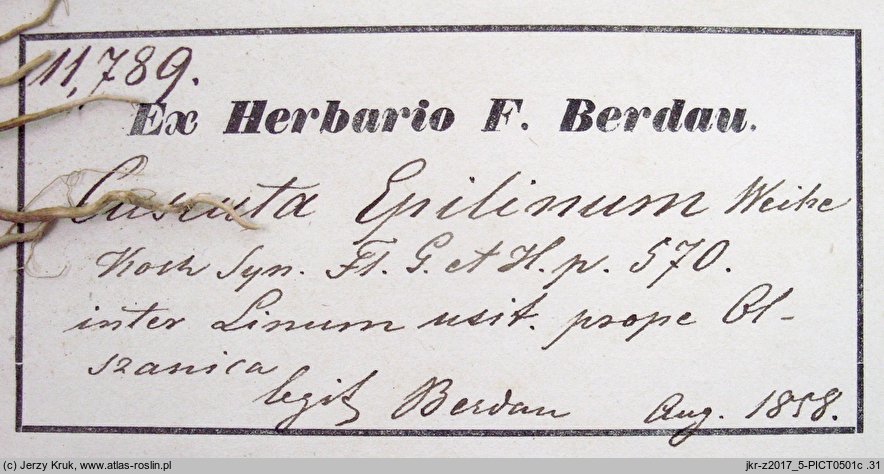 11,789.
Ex Herbario F. Berdau.
Cuscuta Epilinum Weihe
Koch Syn. Fl. G. et H. p. 570.
inter Linum usit. prope Ol-
szanica
legit Berdau Aug. 1858.
(c) Jerzy Kruk, www.atlas-roslin.pl
jkr-z2017_5-PICT0501c .31